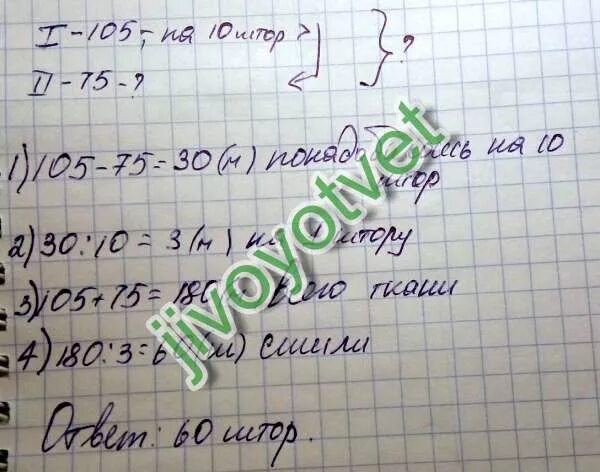 I - 105 - на 10 штор >
II - 75 - ?
} ?
1) 105 - 75 = 30 (м) понадобилось на 10
штор
2) 30 : 10 = 3 (м) на 1 штору
3) 105 + 75 = 180 всего ткани
4) 180 : 3 = 60 (м) сшили
Ответ: 60 штор.
jivoyotvet